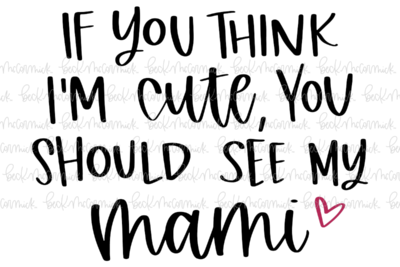 IF YOU THINK
I'M cute, YOU
SHOULD SEE MY
mami